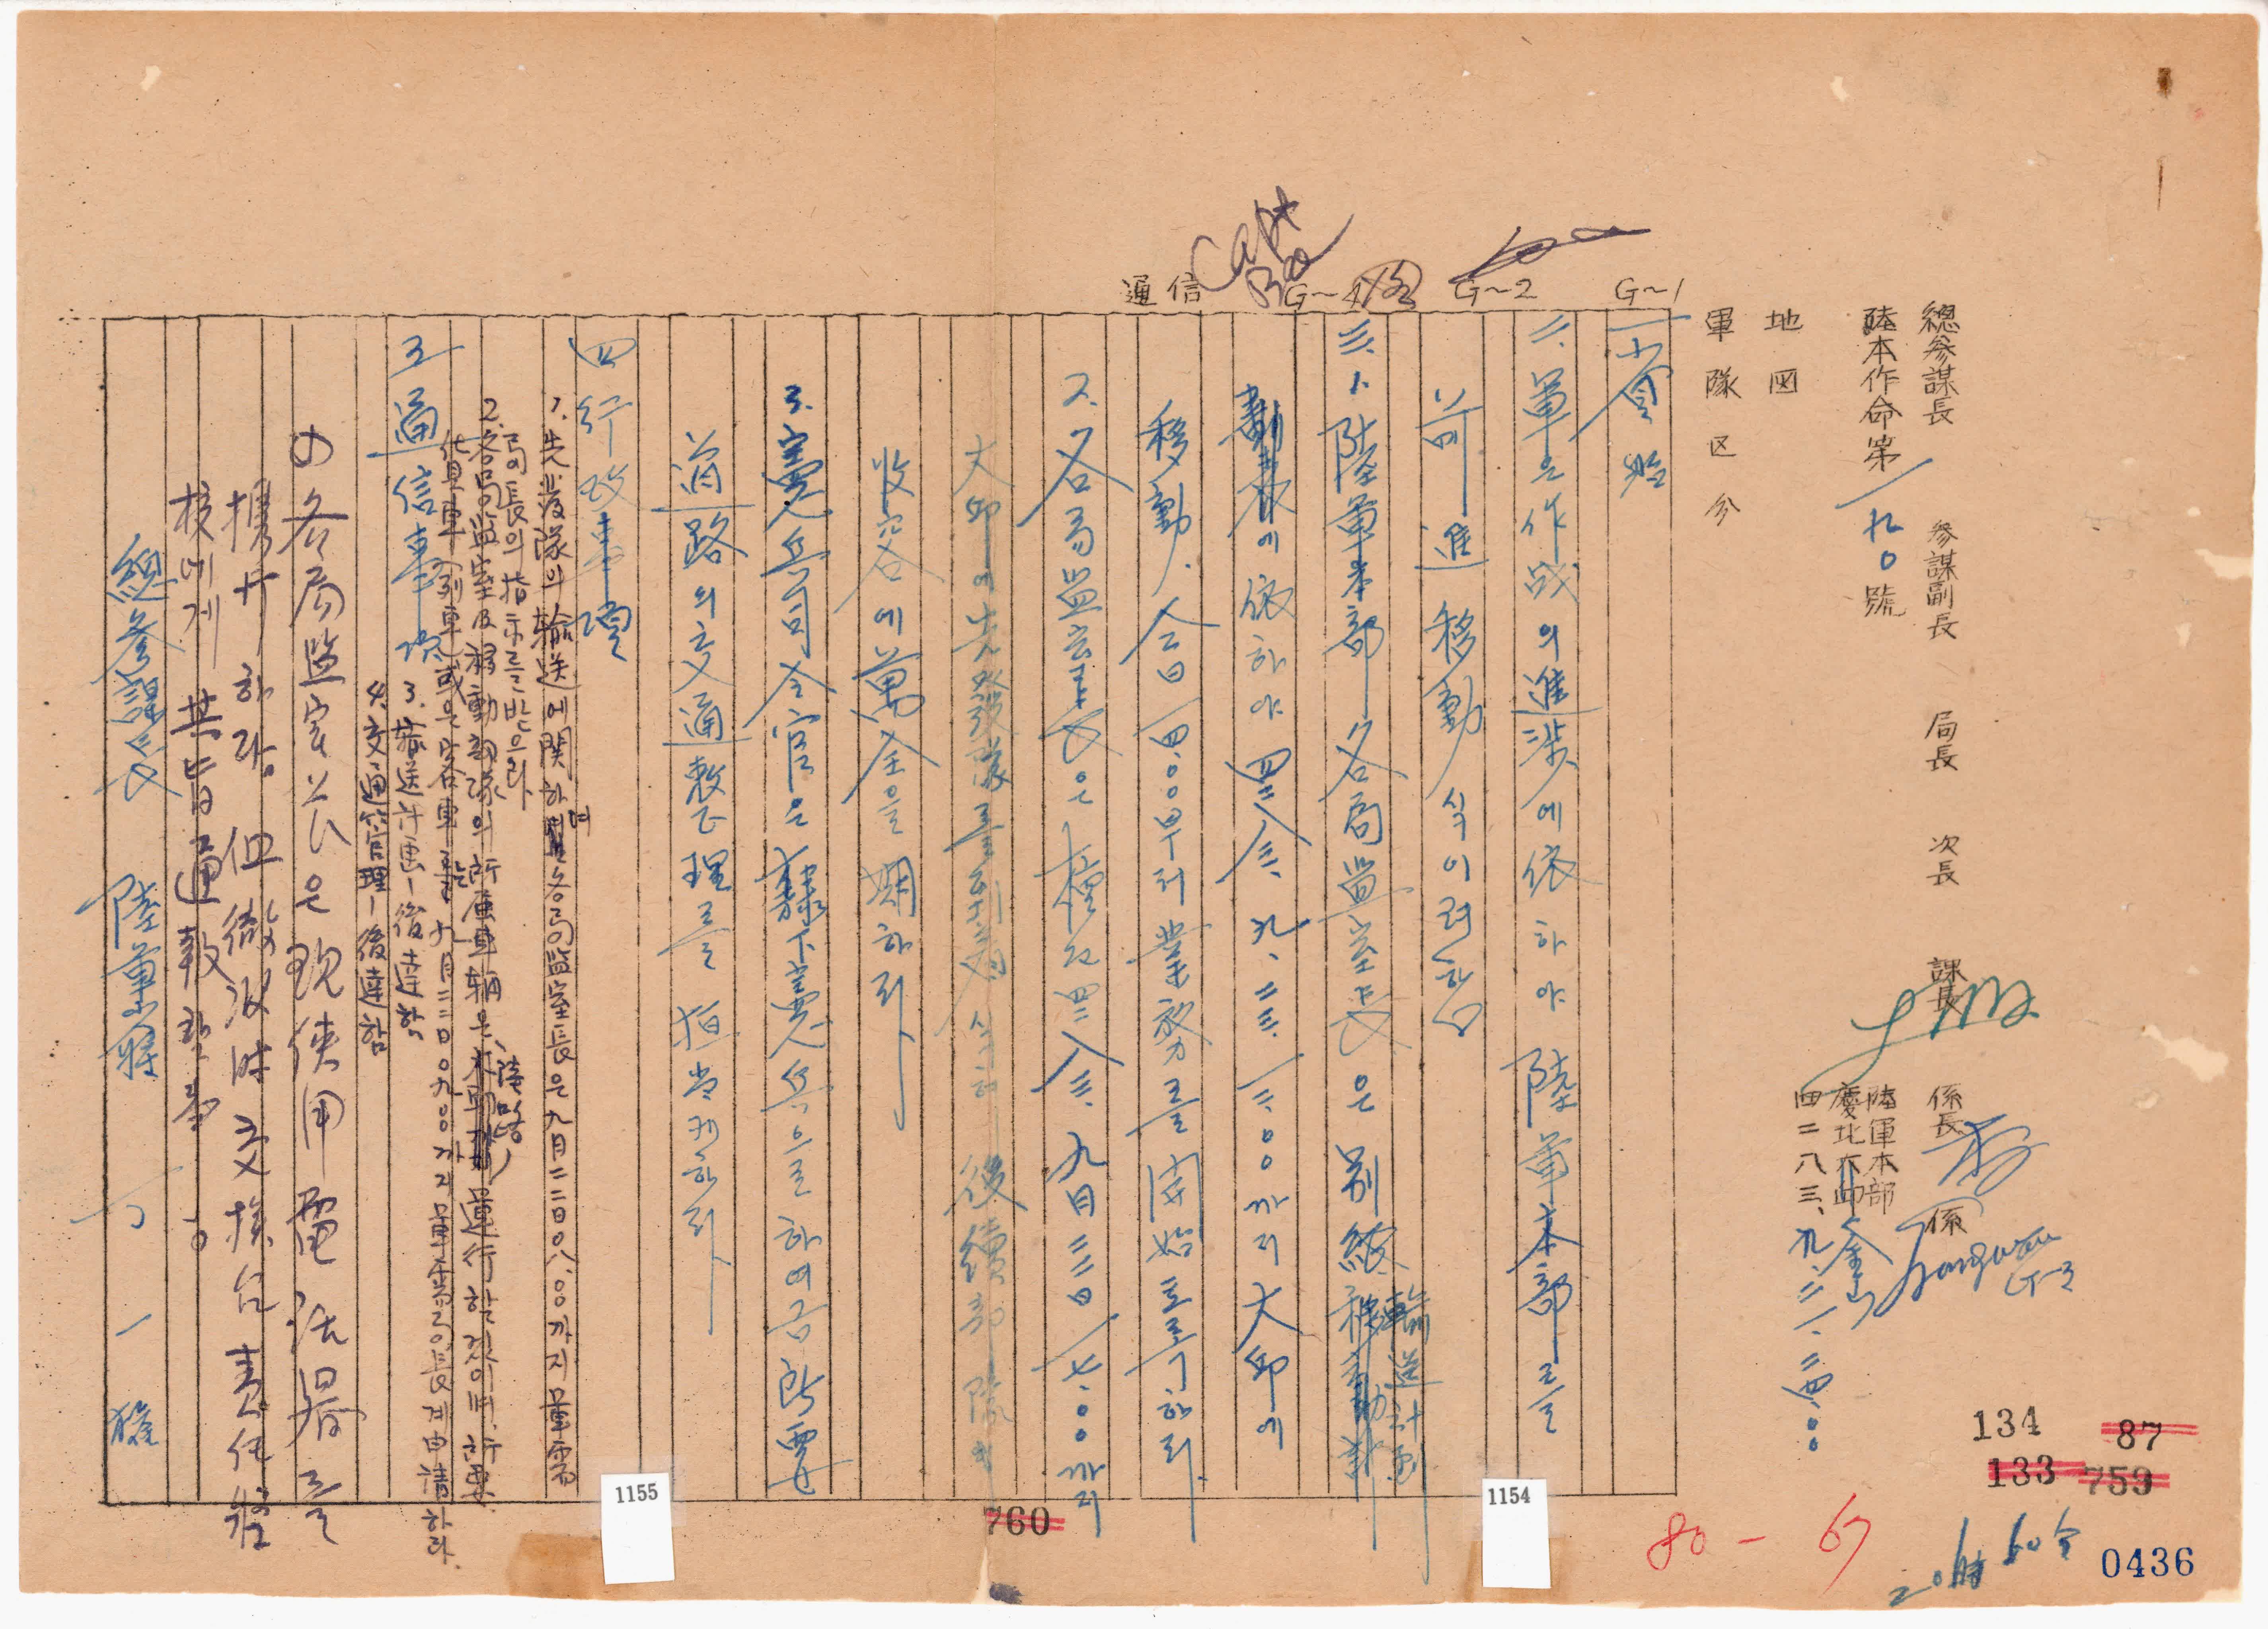 總參謀長 參謀副長 局長 次長 課長 係長 係
陸本作命第一九0號
陸軍本部
慶北大邱
四二八三、九、二一、二四、00
地図
軍隊区分
G~1
G~2
G~4
通信
Capt
一、省略
二、軍은作战의進涉에依하야 陸軍本部를
前進 移動 식이려함
三、1. 陸軍本部 各局監室長은 別紙 輸送計画
劃表에 依하야 四二八三、九、二三、一三、00까지 大邱에
移動、今日 一四、00부터 業務를 開始토록 하라
2. 各局監室長은 檀紀四二八三、九月二三日 一七、00까지
大邱에 先發隊를 到着식혀 後續部隊의
收容에 萬全을 期하라
3. 憲兵司令官은 隷下憲兵으로 하여금 所要
道路의 交通整理를 担当케하라
四 行政事項
1. 先發隊의 輸送에 関하여 各局監室長은 九月二二日0八、00까지 軍需
局長의 指示를 받으라
2. 各局監室及移動部隊의 所属車輌은 陸路 運行할것이며、所要
貨車(列車) 或은 客車는 九月二二日0九00까지 軍需局長계 申請하라.
3. 輸送計画-後達함
4. 交通管理-後達함
五 通信事項
各局監室长은 現使用電話器를
携行하라 但 撤收時 交換台責任將
校에게 其旨通報할事
總參謀長 陸軍少將 丁 一 權
1154
1155
760
134
133
87
759
80-67
0436